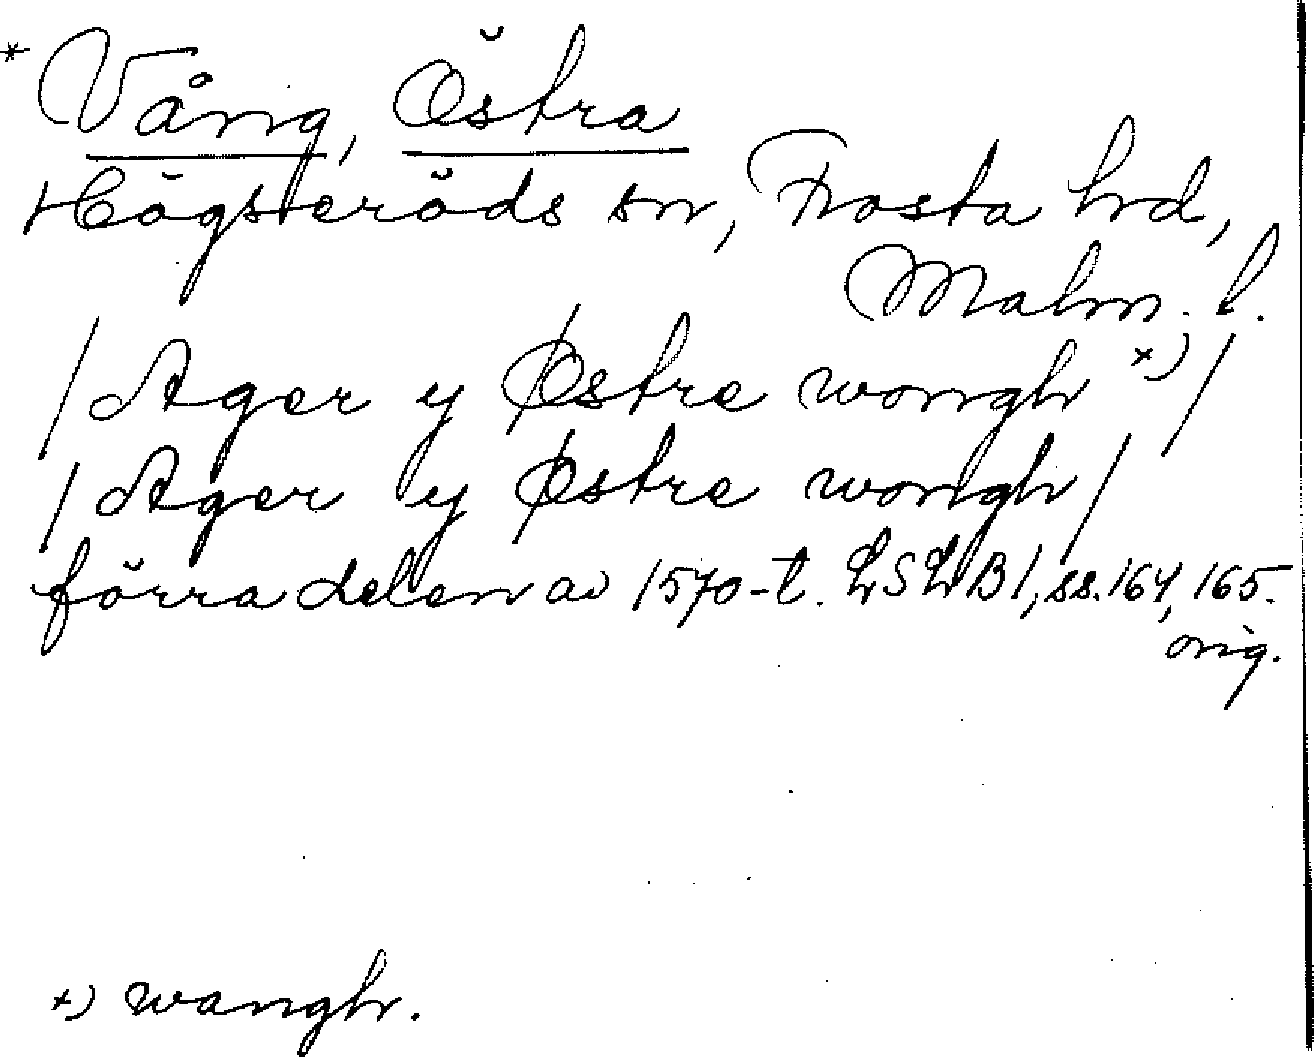 * Vång, Östra
Högseröds sn, Frosta hrd,
Malm. l.
/Ager y Østre wongh x)/
/Ager y Østre wongh/
förra delen av 1570-t. LSLB1, ss. 164, 165.
orig.
x) wangh.